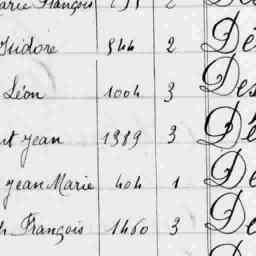 arie François 2
Isidore 544 2 Dé
Léon 1004 3 Des
rt jean 1389 3 Dé
jean Marie 404 1 De
François 1460 3 De